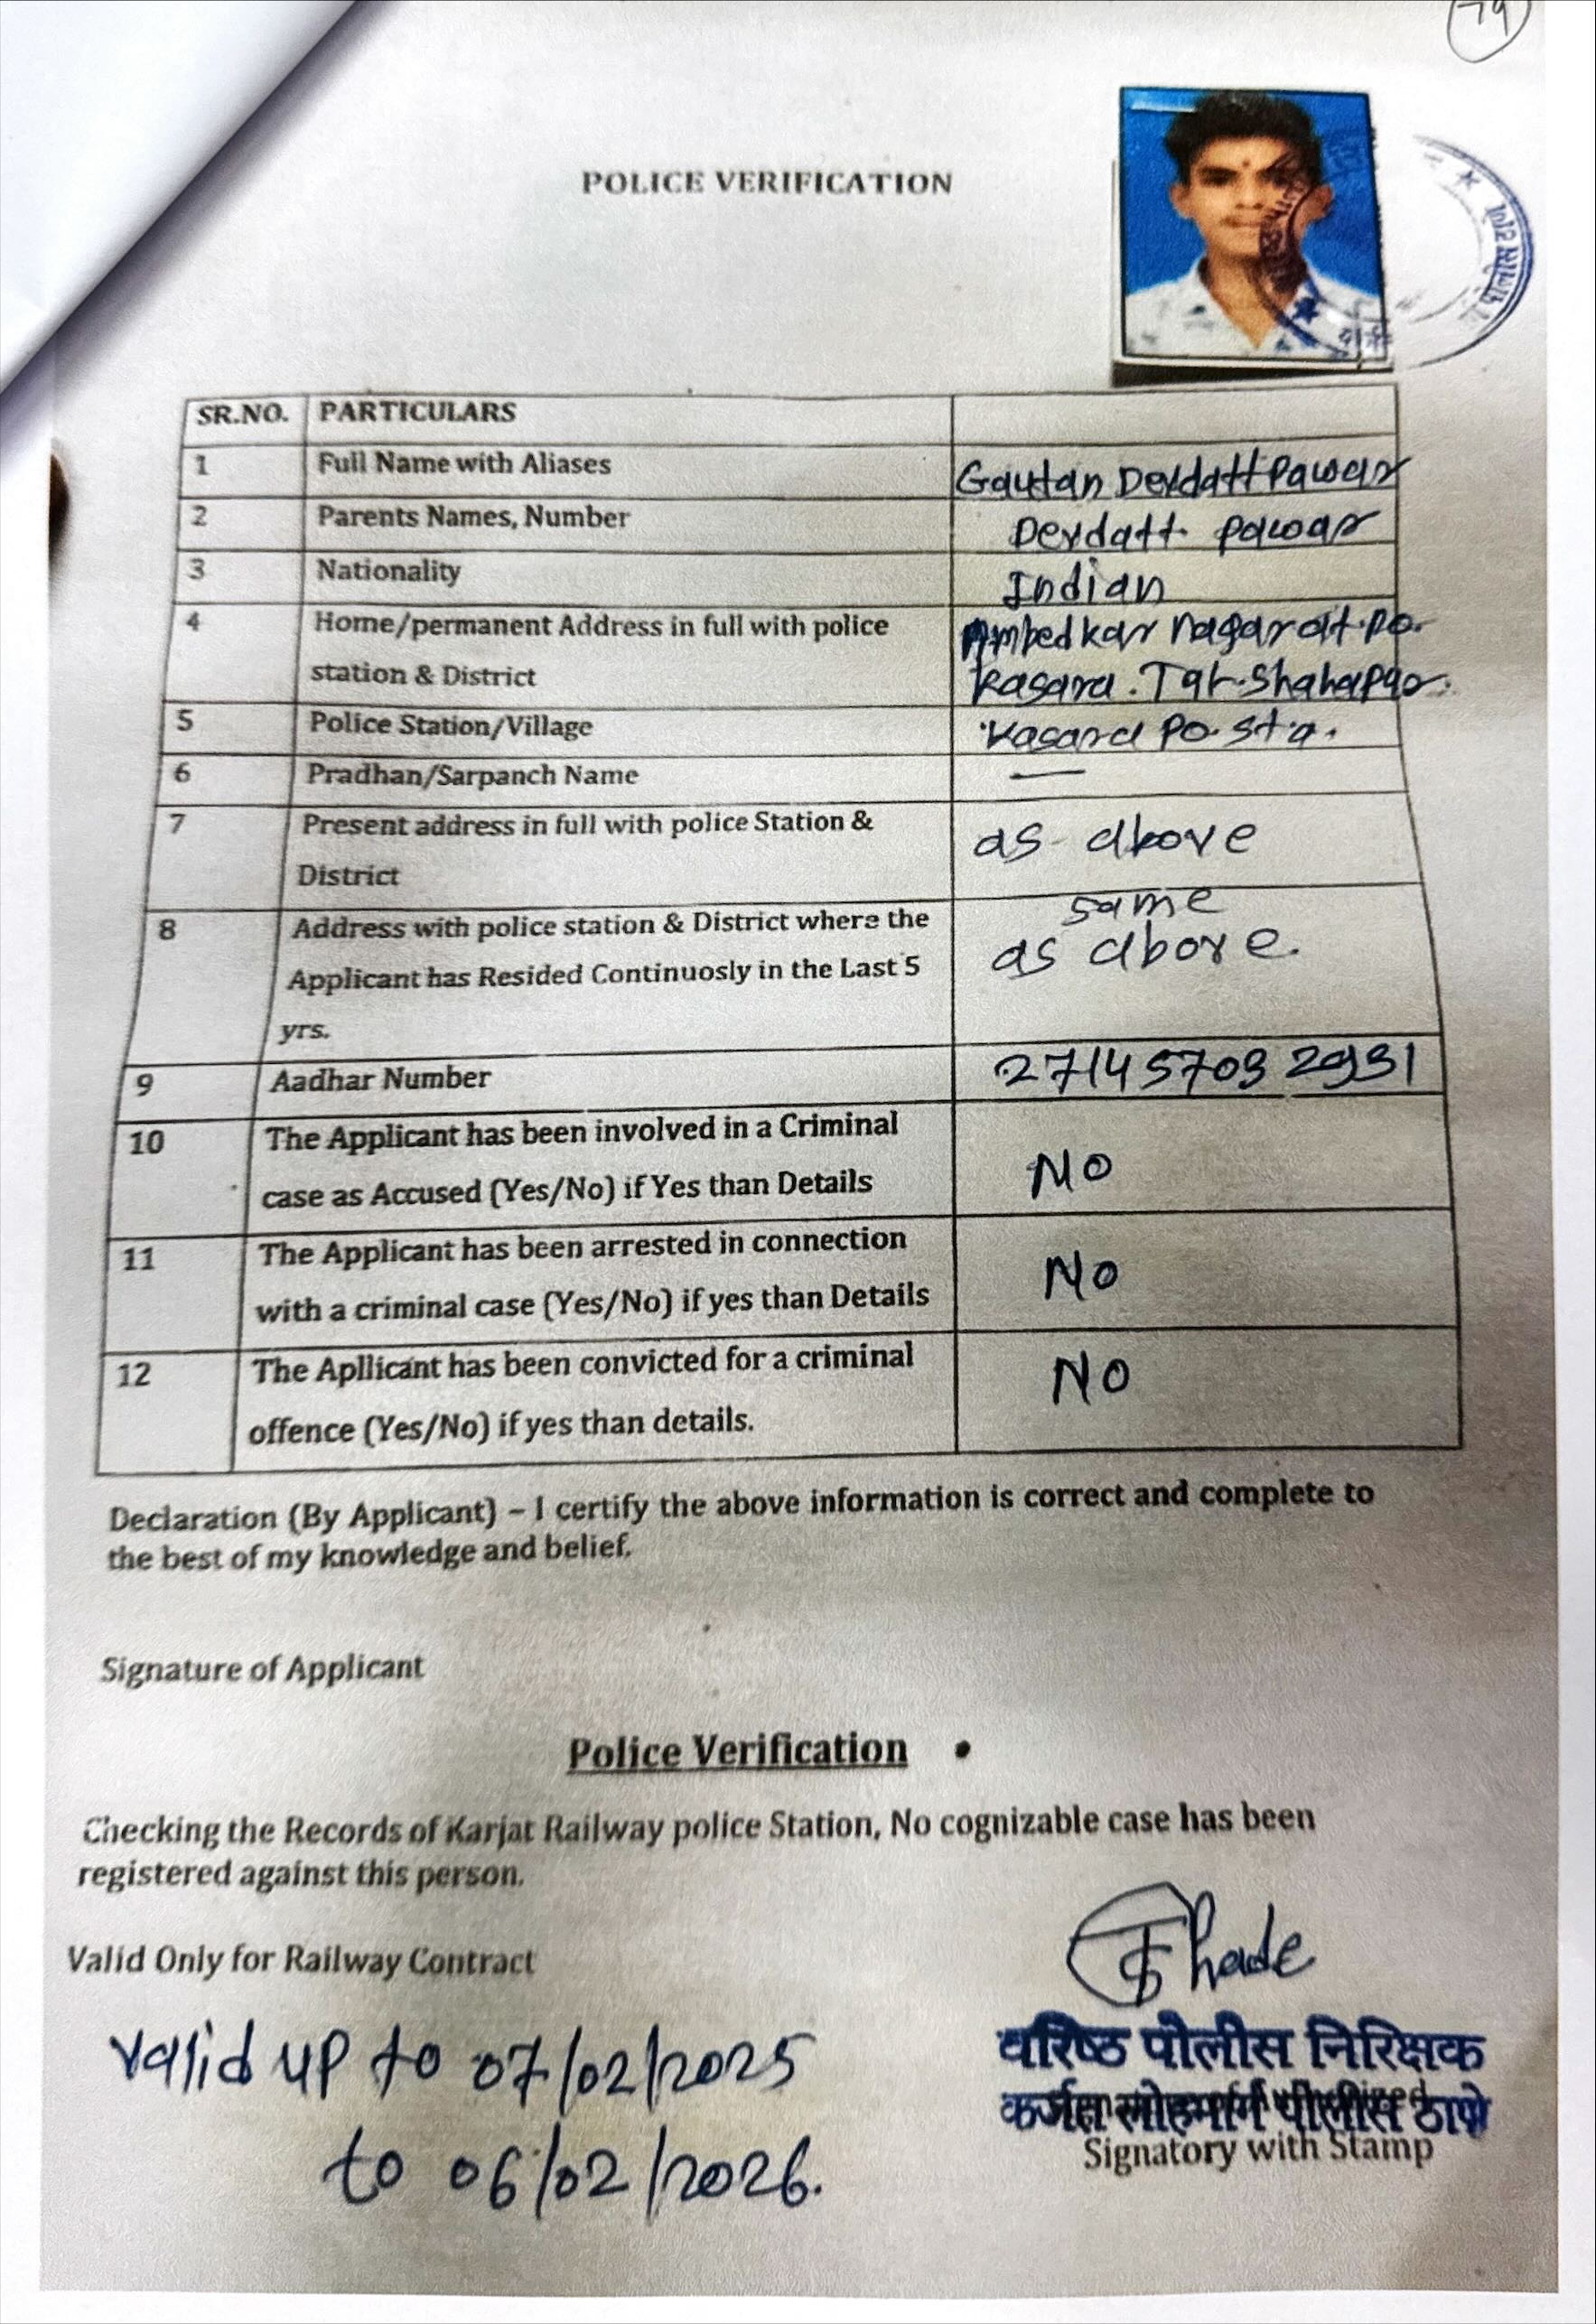 79
POLICE VERIFICATION
SR.NO. PARTICULARS
1 Full Name with Aliases Gautan Devdatt Pawar
2 Parents Names, Number Devdatt Pawar
3 Nationality Indian
4 Home/permanent Address in full with police Ambedkar nagar at.po.
station & District Kasara. Tal. Shahapur.
5 Police Station/Village Kasara Po. sta.
6 Pradhan/Sarpanch Name —
7 Present address in full with police Station & as above
District
same
8 Address with police station & District where the as above.
Applicant has Resided Continuosly in the Last 5
yrs.
9 Aadhar Number 2714 5703 2931
10 The Applicant has been involved in a Criminal NO
case as Accused (Yes/No) if Yes than Details
11 The Applicant has been arrested in connection NO
with a criminal case (Yes/No) if yes than Details
12 The Apllicant has been convicted for a criminal NO
offence (Yes/No) if yes than details.
Declaration (By Applicant) – I certify the above information is correct and complete to
the best of my knowledge and belief.
Signature of Applicant
Police Verification
Checking the Records of Karjat Railway police Station, No cognizable case has been
registered against this person.
Valid Only for Railway Contract
valid up to 07/02/2025
to 06/02/2026.
वरिष्ठ पोलीस निरिक्षक
कर्जत लोहमार्ग पोलीस ठाणे
Signatory with Stamp